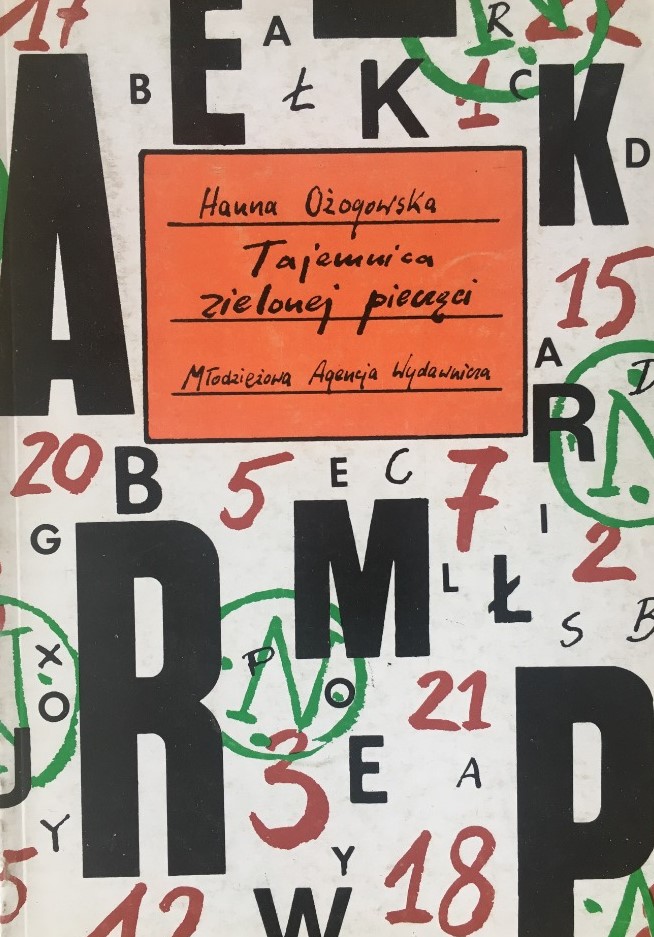 17 E A R 22
B Ł K 1 C K D
A
Hanna Ożogowska
Tajemnica
zielonej pieczęci
Młodzieżowa Agencja Wydawnicza
15
A D
R N
20 B 5 E C 7
G I
R M 2
L Ł S B
X P N
O O 21 P
J 3 E A
Y Y
5 12 W 18